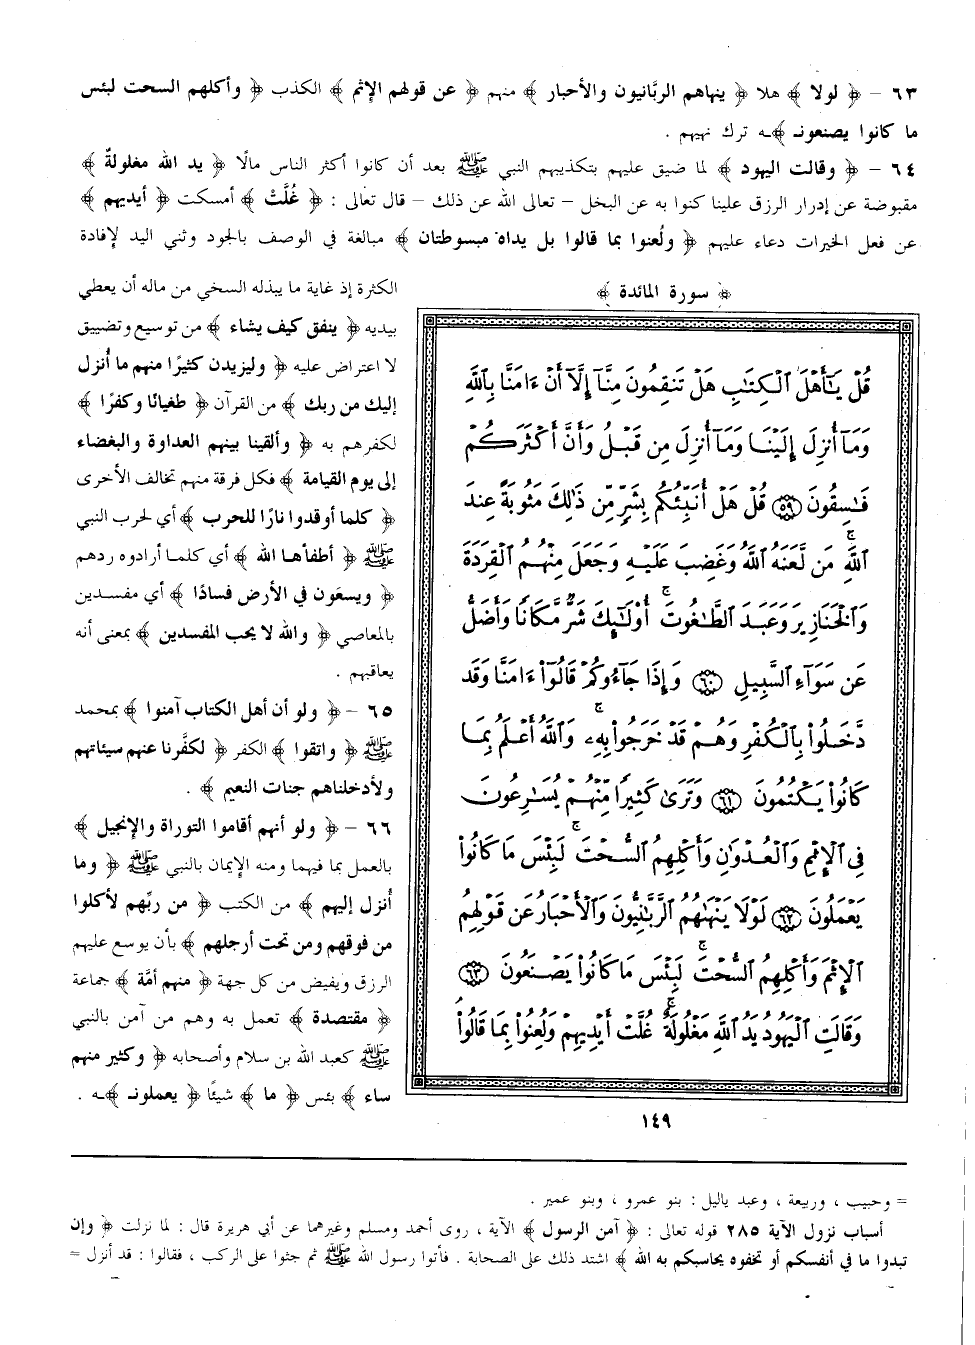 ٦٣ – ﴿ لولا ﴾ هلا ﴿ ينهاهم الربَّانيون والأحبار ﴾ منهم ﴿ عن قولهم الإثم ﴾ الكذب ﴿ وأكلهم السحت لبئس
ما كانوا يصنعونـ ﴾ـه ترك نهيهم .
٦٤ – ﴿ وقالت اليهود ﴾ لما ضيق عليهم بتكذيبهم النبي ﷺ بعد أن كانوا أكثر الناس مالًا ﴿ يد الله مغلولةٌ ﴾
مقبوضة عن إدرار الرزق علينا كنوا به عن البخل – تعالى الله عن ذلك – قال تعالى : ﴿ غُلَّتْ ﴾ أمسكت ﴿ أيديهم ﴾
عن فعل الخيرات دعاء عليهم ﴿ ولُعنوا بما قالوا بل يداه مبسوطتان ﴾ مبالغة في الوصف بالجود وثني اليد لإفادة
الكثرة إذ غاية ما يبذله السخي من ماله أن يعطي
بيديه ﴿ ينفق كيف يشاء ﴾ من توسيع وتضييق
لا اعتراض عليه ﴿ وليزيدن كثيرًا منهم ما أُنزل
إليك من ربك ﴾ من القرآن ﴿ طغيانًا وكفرًا ﴾
لكفرهم به ﴿ وألقينا بينهم العداوة والبغضاء
إلى يوم القيامة ﴾ فكل فرقة منهم تخالف الأخرى
﴿ كلما أوقدوا نارًا للحرب ﴾ أي لحرب النبي
ﷺ ﴿ أطفأها الله ﴾ أي كلما أرادوه ردهم
﴿ ويسعَون في الأرض فسادًا ﴾ أي مفسدين
بالمعاصي ﴿ والله لا يحب المفسدين ﴾ بمعنى أنه
يعاقبهم .
٦٥ – ﴿ ولو أن أهل الكتاب آمنوا ﴾ بمحمد
ﷺ ﴿ واتقوا ﴾ الكفر ﴿ لكفَّرنا عنهم سيئاتهم
ولأدخلناهم جنات النعيم ﴾ .
٦٦ – ﴿ ولو أنهم أقاموا التوراة والإنجيل ﴾
بالعمل بما فيهما ومنه الإيمان بالنبي ﷺ ﴿ وما
أُنزل إليهم ﴾ من الكتب ﴿ من ربِّهم لأكلوا
من فوقهم ومن تحت أرجلهم ﴾ بأن يوسع عليهم
الرزق ويفيض من كل جهة ﴿ منهم أمَّة ﴾ جماعة
﴿ مقتصدة ﴾ تعمل به وهم من آمن بالنبي
ﷺ كعبد الله بن سلام وأصحابه ﴿ وكثير منهم
ساء ﴾ بئس ﴿ ما ﴾ شيئًا ﴿ يعملونـ ﴾ـه .
﴿ سورة المائدة ﴾
قُلْ يَٰٓأَهْلَ ٱلْكِتَٰبِ هَلْ تَنقِمُونَ مِنَّآ إِلَّآ أَنْ ءَامَنَّا بِٱللَّهِ
وَمَآ أُنزِلَ إِلَيْنَا وَمَآ أُنزِلَ مِن قَبْلُ وَأَنَّ أَكْثَرَكُمْ
فَٰسِقُونَ ٥٩ قُلْ هَلْ أُنَبِّئُكُم بِشَرٍّ مِّن ذَٰلِكَ مَثُوبَةً عِندَ
ٱللَّهِ ۚ مَن لَّعَنَهُ ٱللَّهُ وَغَضِبَ عَلَيْهِ وَجَعَلَ مِنْهُمُ ٱلْقِرَدَةَ
وَٱلْخَنَازِيرَ وَعَبَدَ ٱلطَّٰغُوتَ ۚ أُو۟لَٰٓئِكَ شَرٌّ مَّكَانًا وَأَضَلُّ
عَن سَوَآءِ ٱلسَّبِيلِ ٦٠ وَإِذَا جَآءُوكُمْ قَالُوٓا۟ ءَامَنَّا وَقَد
دَّخَلُوا۟ بِٱلْكُفْرِ وَهُمْ قَدْ خَرَجُوا۟ بِهِۦ ۚ وَٱللَّهُ أَعْلَمُ بِمَا
كَانُوا۟ يَكْتُمُونَ ٦١ وَتَرَىٰ كَثِيرًا مِّنْهُمْ يُسَٰرِعُونَ
فِى ٱلْإِثْمِ وَٱلْعُدْوَٰنِ وَأَكْلِهِمُ ٱلسُّحْتَ ۚ لَبِئْسَ مَا كَانُوا۟
يَعْمَلُونَ ٦٢ لَوْلَا يَنْهَىٰهُمُ ٱلرَّبَّٰنِيُّونَ وَٱلْأَحْبَارُ عَن قَوْلِهِمُ
ٱلْإِثْمَ وَأَكْلِهِمُ ٱلسُّحْتَ ۚ لَبِئْسَ مَا كَانُوا۟ يَصْنَعُونَ ٦٣
وَقَالَتِ ٱلْيَهُودُ يَدُ ٱللَّهِ مَغْلُولَةٌ ۚ غُلَّتْ أَيْدِيهِمْ وَلُعِنُوا۟ بِمَا قَالُوا۟ ۘ
١٤٩
= وحبيب ، وربيعة ، وعبد ياليل : بنو عمرو ، وبنو عمير .
أسباب نزول الآية ٢٨٥ قوله تعالى : ﴿ آمن الرسول ﴾ الآية ، روى أحمد ومسلم وغيرهما عن أبي هريرة قال : لما نزلت ﴿ وإن
تبدوا ما في أنفسكم أو تخفوه يحاسبكم به الله ﴾ اشتد ذلك على الصحابة . فأتوا رسول الله ﷺ ثم جثوا على الركب ، فقالوا : قد أنزل =